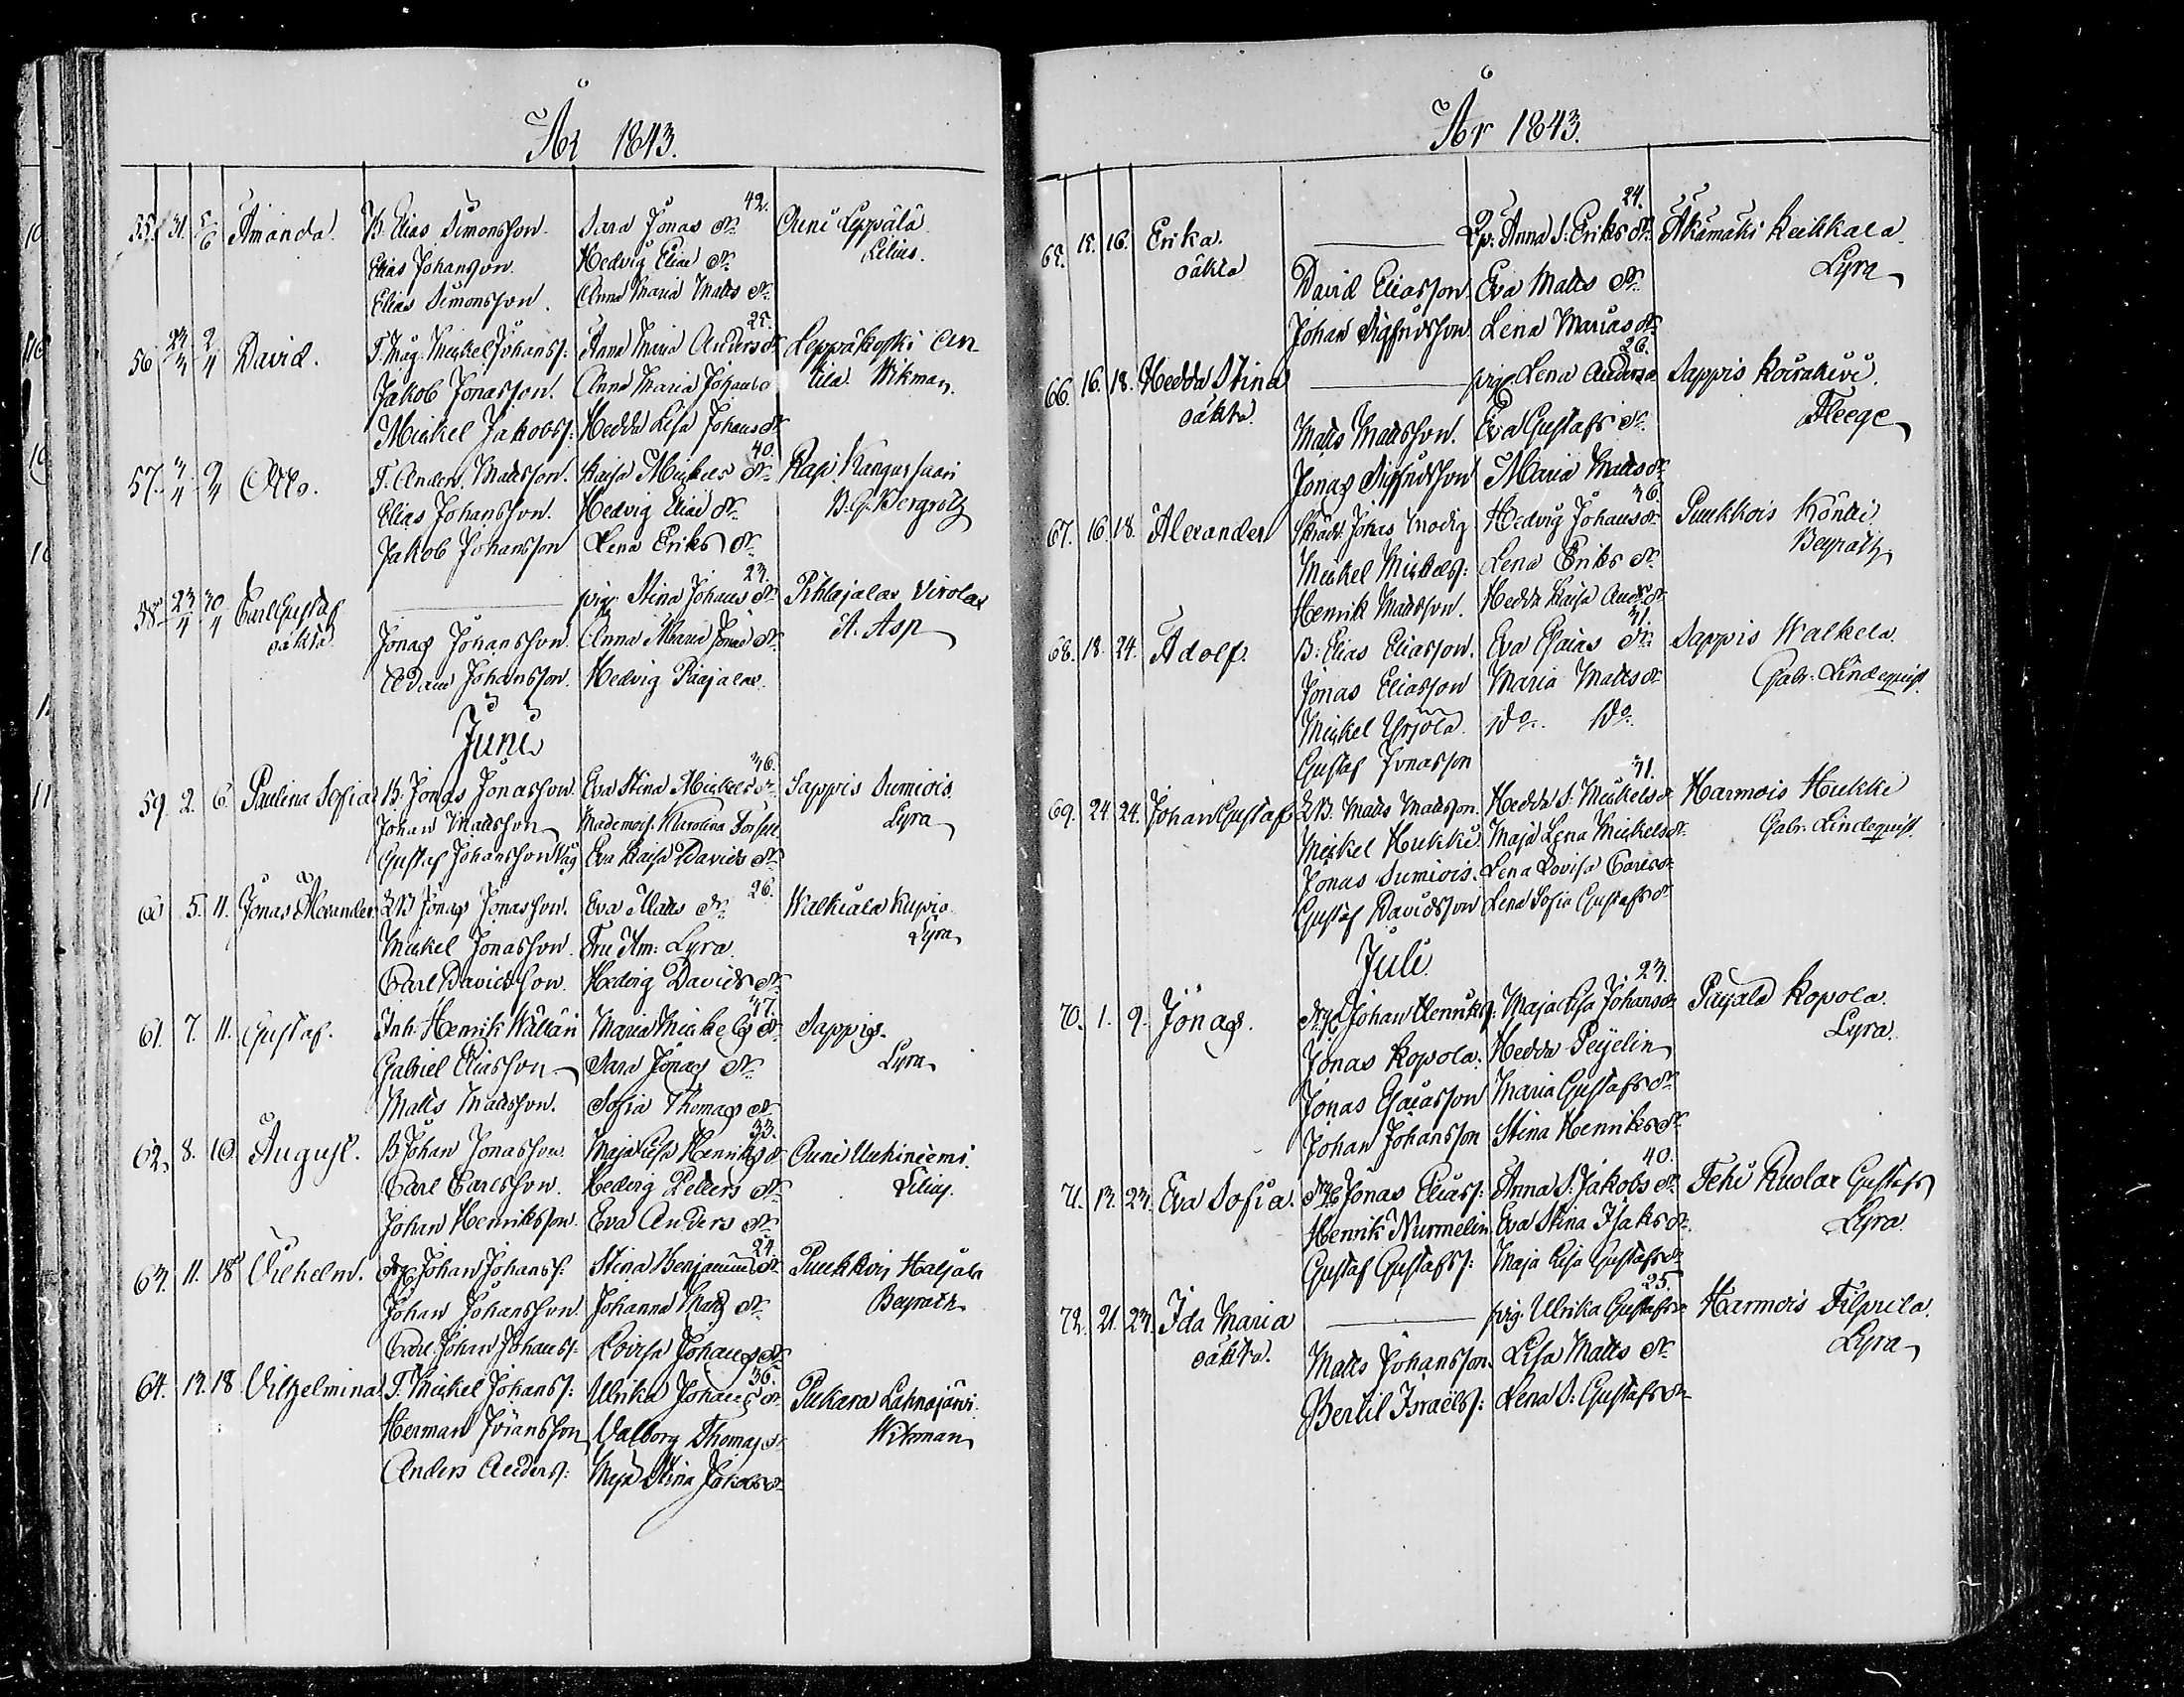 År 1843.
42.
55. 31. 5/6 Amanda. B. Elias Simonsson. Sara Jonas dr. Auni Leppälä
Elias Johansson. Hedvig Elias dr. Lilius.
Elias Simonsson. Anna Maria Matts dr.
25.
56 23/3 2/4 David. T. Måg. Mickel Johanss: Anna Maria Anders dr Leppäkoski An-
Jakob Jonasson. Anna Maria Johans d tila Wikman
Mickel Jakobss: Hedda Lisa Johans dr
40.
57. 3/4 9/4 Otto. T. Anders Mattsson. Kaisa Mickels dr. Rasi Kangussuari
Elias Johansson. Hedvig Elias dr. B. G. Bergroth
Jakob Johansson Lena Eriks dr.
23.
58. 23/4 30/4 Carl Gustaf pig. Stina Johans dr. Pihlajalax Virolax
oäkta. Jonas Johansson. Anna Maria Jonas dr. A. Asp
Adam Johansson. Hedvig Paajalax.
Juni
36.
59. 2. 6. Paulina Sofia B. Jonas Jonasson. Eva Stina Mickels dr. Sappis Sumiois
Johan Mattsson Mademois. Karolina Lyra
Gustaf Johansson Eva Kaisa Davids dr.
26.
60 5. 11. Jonas Alexander LB Jonas Jonasson. Eva Matts dr. Walkiala Kupio
Mickel Jonasson. Fru Am: Lyra. Lyra
Carl Davidsson. Hedvig Davids dr.
37.
61. 7. 11. Gustaf. Inh. Henrik Wallari Maria Mickels dr. Sappis.
Gabriel Eliasson Sara Jonas dr. Lyra
Matts Mattsson. Sofia Thomas dr.
33.
62. 8. 10. August. B Johan Jonasson. Maja Lisa Henriks dr Auni Uuhiniemi.
Carl Carlsson. Hedvig Petters dr. Lilius.
Johan Henriksson. Eva Anders dr.
24.
63. 11. 18 Vilhelm. drg Johan Johanss: Stina Benjamins dr Puukkois Haljala
Johan Johansson. Johanna Matts dr. Beyrath
Carl Johan Johanss: Lovisa Johans dr.
36.
64. 13. 18 Vilhelmina T. Mickel Johanss: Ulrika Johans dr. Pukara Lahnajärvi.
Herman Jöransson Valborg Thomas dr Wikman
Anders Anders: Maja Stina Jakobs dr
År 1843.
24.
65. 15. 16. Erika. Qp: Anna S. Eriks dr. Äkämäki Keikkala.
oäkta David Eliasson. Eva Matts dr. Lyra
Johan Sigfridsson. Lena Marias dr.
26.
66. 16. 18. Hedda Stina pig Lena Anders d Sappis Koirakivi.
oäkta. Matts Mattsson. Eva Gustafs dr. Fleege
Jonas Sigfridsson Maria Matts dr
36.
67. 16. 18. Alexander Skrädd. Johas Modig Hedvig Johans dr Puukkois Köntti
Mickel Mickels: Lena Eriks dr. Beyrath
Henrik Mattsson. Hedda Kaisa Anders dr
31.
68. 18. 24. Adolf. B: Elias Eliasson. Eva Esaias dr. Sappis Walkela
Jonas Eliasson Maria Matts dr. Gabr: Lindequist.
Mickel Yrjölä. do. do.
Gustaf Jonasson
31.
69. 24. 24. Johan Gustaf LB. Matts Mattsson. Hedda S. Mickels d Harmois Hukki
Mickel Hukki Maja Lena Mickels dr. Gabr. Lindequist.
Jonas Sumiois. Lena Lovisa Carls dr.
Gustaf Davidsson Lena Sofia Gustafs dr
Juli
23.
70. 1. 9. Jonas. drg Johan Henrikss: Maja Lisa Johans dr Pajala Kopola.
Jonas Kopola. Hedda Peijelin Lyra.
Jonas Esaiasson Maria Gustafs dr.
Johan Johansson Stina Henriks dr.
40.
71. 13. 23. Eva Sofia. drg Jonas Eliass: Anna S. Jakobs dr. Tehi Ruolax Gustafs
Henrik Nurmelin Eva Stina Isaks dr. Lyra
Gustaf Gustafss: Maja Lisa Gustafs dr
25.
72. 21. 23. Ida Maria pig. Ulrika Gustafs dr Harmois Filpula.
oäkta. Matts Johansson. Lisa Matts dr. Lyra
Bertil Israelss: Lena S. Gustafs dr